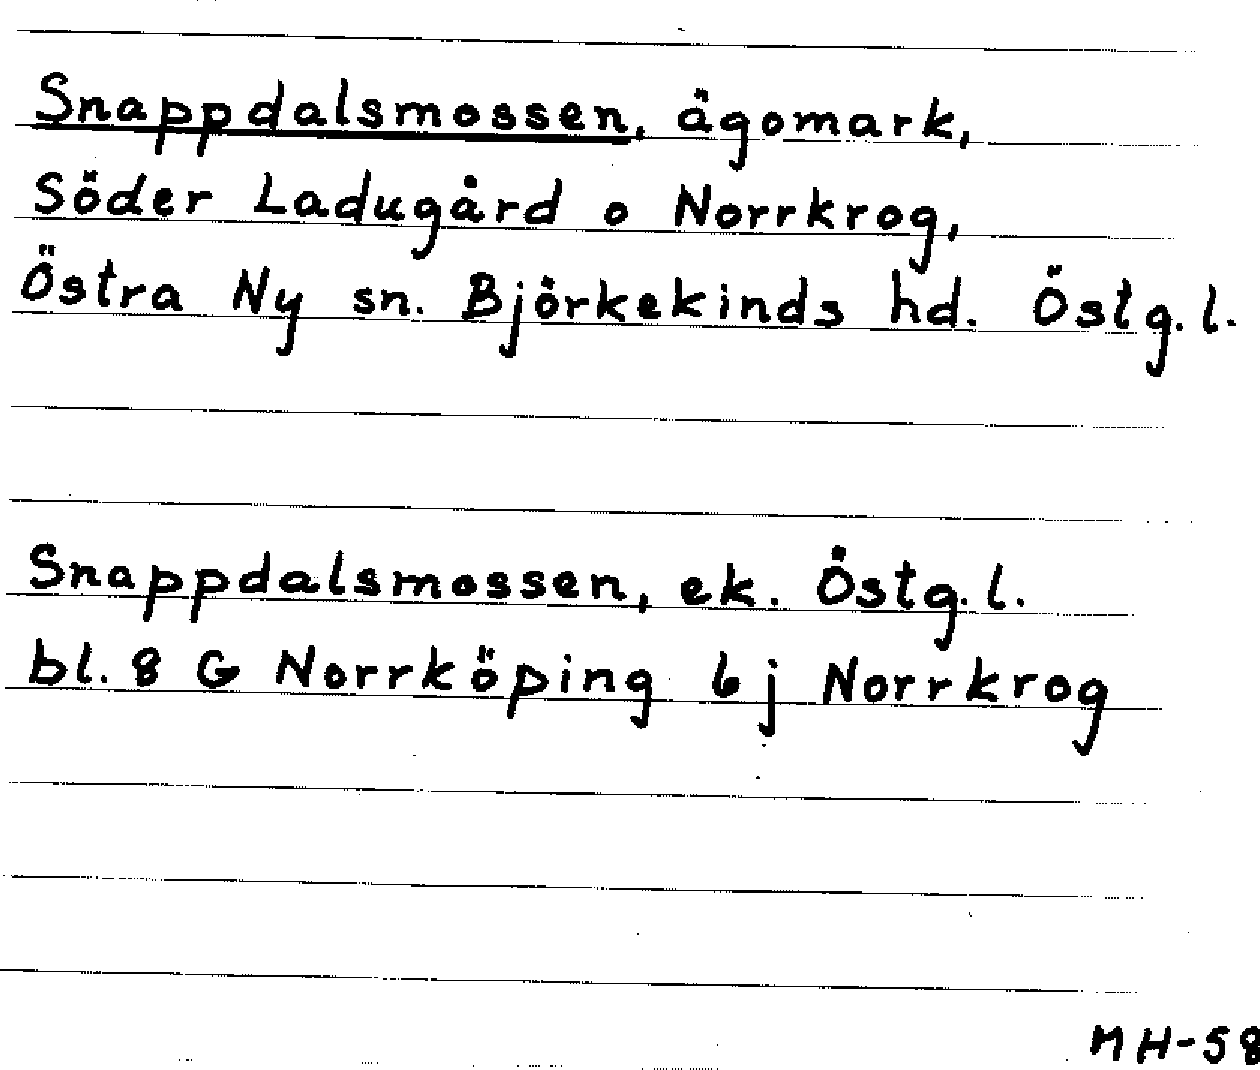 Snappdalsmossen, ägomark,
Söder Ladugård o Norrkrog,
Östra Ny sn. Björkekinds hd. Östg.l.
Snappdalsmossen, ek. Östg.l.
bl. 8 G Norrköping 6j Norrkrog
MH-58